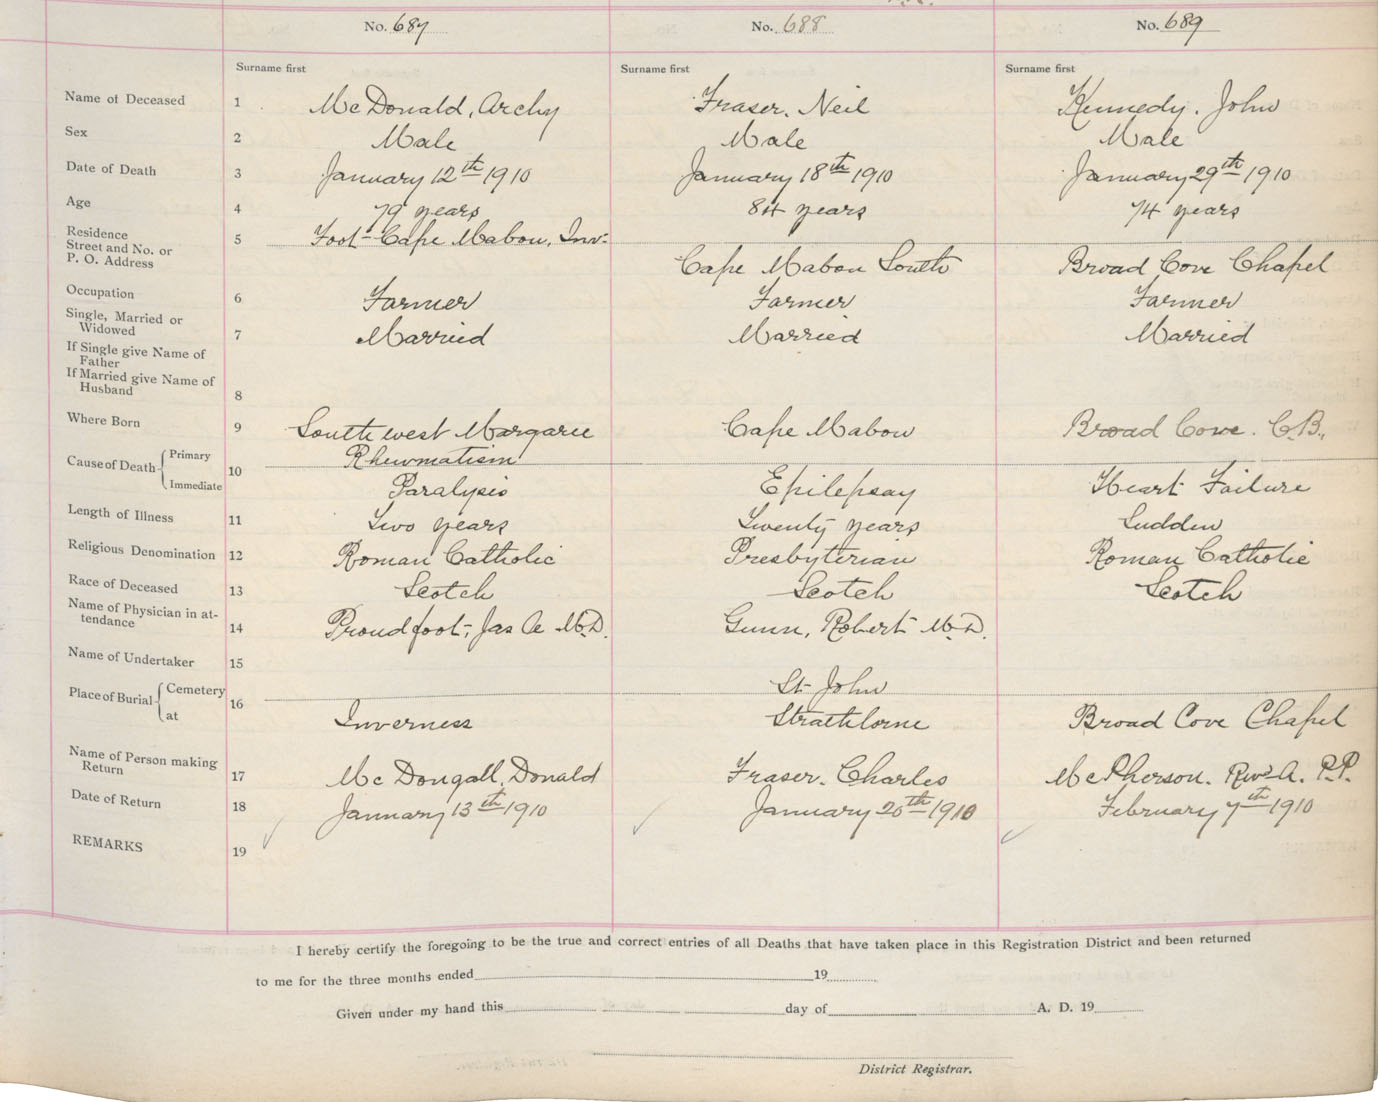 No. 687 No. 688 No. 689
Surname first Surname first Surname first
Name of Deceased 1 McDonald, Archy Fraser, Neil Kennedy, John
Sex 2 Male Male Male
Date of Death 3 January 12th 1910 January 18th 1910 January 29th 1910
Age 4 79 years 84 years 74 years
Residence
Street and No. or
P. O. Address 5 Foot Cape Mabou, Inv. Cape Mabou South Broad Cove Chapel
Occupation 6 Farmer Farmer Farmer
Single, Married or
Widowed 7 Married Married Married
If Single give Name of
Father
If Married give Name of
Husband 8
Where Born 9 South west Margaree Cape Mabou Broad Cove. C.B.,
Cause of Death Primary 10 Rheumatism
Immediate Paralysis Epilepsay Heart Failure
Length of Illness 11 Two years Twenty years Sudden
Religious Denomination 12 Roman Catholic Presbyterian Roman Catholic
Race of Deceased 13 Scotch Scotch Scotch
Name of Physician in at-
tendance 14 Proudfoot, Jas A M.D. Gunn, Robert M.D.
Name of Undertaker 15
Place of Burial Cemetery 16 St John
at Inverness Strathlorne Broad Cove Chapel
Name of Person making
Return 17 McDougall, Donald Fraser, Charles McPherson. Revd A. P.P.
Date of Return 18 January 13th 1910 January 20th 1910 February 7th 1910
REMARKS 19
I hereby certify the foregoing to be the true and correct entries of all Deaths that have taken place in this Registration District and been returned
to me for the three months ended 19
Given under my hand this day of A. D. 19
District Registrar.